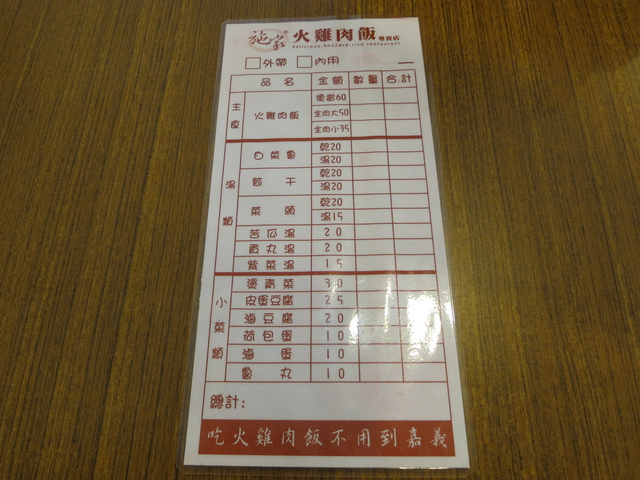 施家 火雞肉飯 專賣店
delicious buzzard-rice restaurant
外帶 內用
品名 金額 數量 合計
主食
火雞肉飯 便當60
全肉大50
全肉小35
湯類
白菜魯 乾20
湯20
筍干 乾20
湯20
菜頭 乾20
湯15
苦瓜湯 20
貢丸湯 20
紫菜湯 15
小菜類
燙青菜 30
皮蛋豆腐 25
滷豆腐 20
荷包蛋 10
滷蛋 10
魯丸 10
總計:
吃火雞肉飯不用到嘉義